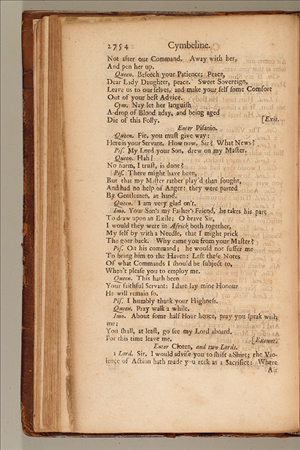 2754 Cymbeline.
Not after our Command. Away with her,
And pen her up.
Queen. Beseech your Patience: Peace,
Dear Lady Daughter, peace. Sweet Sovereign,
Leave us to our selves, and make your self some Comfort
Out of your best Advice.
Cym. Nay let her languish
A drop of Blood aday, and being aged
Die of this Folly. [Exit.
Enter Pisanio.
Queen. Fie, you must give way:
Here is your Servant. How now, Sir? What News?
Pis. My Lord your Son, drew on my Master.
Queen. Hah!
No harm, I trust, is done?
Pis. There might have been,
But that my Master rather play'd than fought,
And had no help of Anger: they were parted
By Gentlemen, at hand.
Queen. I am very glad on't.
Imo. Your Son's my Father's Friend, he takes his part
To draw upon an Exile; O brave Sir,
I would they were in Africk both together,
My self by with a Needle, that I might prick
The goer back. Why came you from your Master?
Pis. On his command; he would not suffer me
To bring him to the Haven: Left these Notes
Of what Commands I should be subject to,
When't please you to employ me.
Queen. This hath been
Your faithful Servant: I dare lay mine Honour
He will remain so.
Pis. I humbly thank your Highness.
Queen. Pray walk a while.
Imo. About some half Hour hence, pray you speak with
me;
You shall, at least, go see my Lord aboard.
For this time leave me. [Exeunt.
Enter Cloten, and two Lords.
1 Lord. Sir, I would advise you to shift a Shirt; the Vio-
lence of Action hath made you reek as a Sacrifice: Where
Air